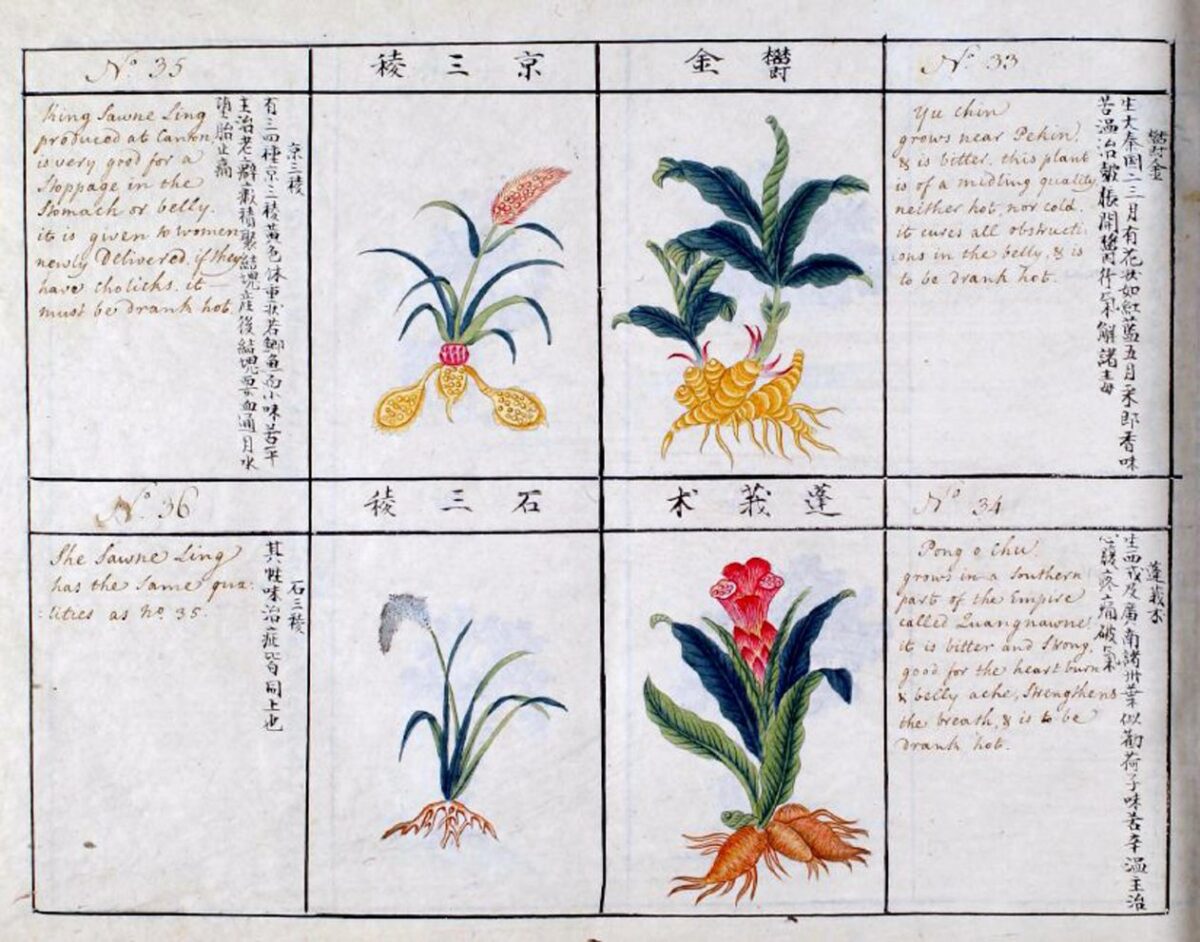 鬱金
No. 33
Yu Chin
grows near Pekin
& is bitter. this plant
is of a midling quality
neither hot, nor cold.
it cures all obstructi:
ons in the belly, & is
to be drank hot.
鬱金
生大秦國二三月有花狀如紅藍五月采即香味
苦温治脹開行氣解諸
蓬莪朮
No. 34
Pong o Chu.
grows in a Southern
part of the Empire
called Quangnawne.
it is bitter and Strong.
good for the heart burn
& belly ache, Strengthens
the breath, & is to be
drank hot.
蓬莪朮
生西戎及廣南諸州葉似荷子味苦辛温主治
心腹疼痛破氣
京三稜
No. 35
King Sawne Ling
produced at Canton
is very good for a
Stoppage in the
Stomach or belly.
it is given to women
newly Delivered, if they
have cholicks. it
must be drank hot.
京三稜
有三四種京三稜黃色体重狀若鯽魚而小味苦平
主治老癖癥積聚結塊產後結塊惡血通月水
墮胎止痛
石三稜
No. 36
She Sawne Ling
has the Same qua:
:lities as No. 35.
石三稜
其性味治症皆同上也